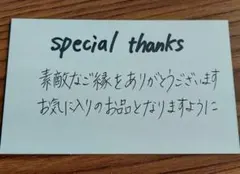 special thanks
素敵なご縁をありがとうございます
お気に入りのお品となりますように